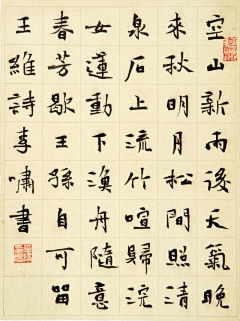 空山新雨後天氣晚
來秋明月松間照清
泉石上流竹喧歸浣
女蓮動下漁舟隨意
春芳歇王孫自可留
王維詩李嘯書